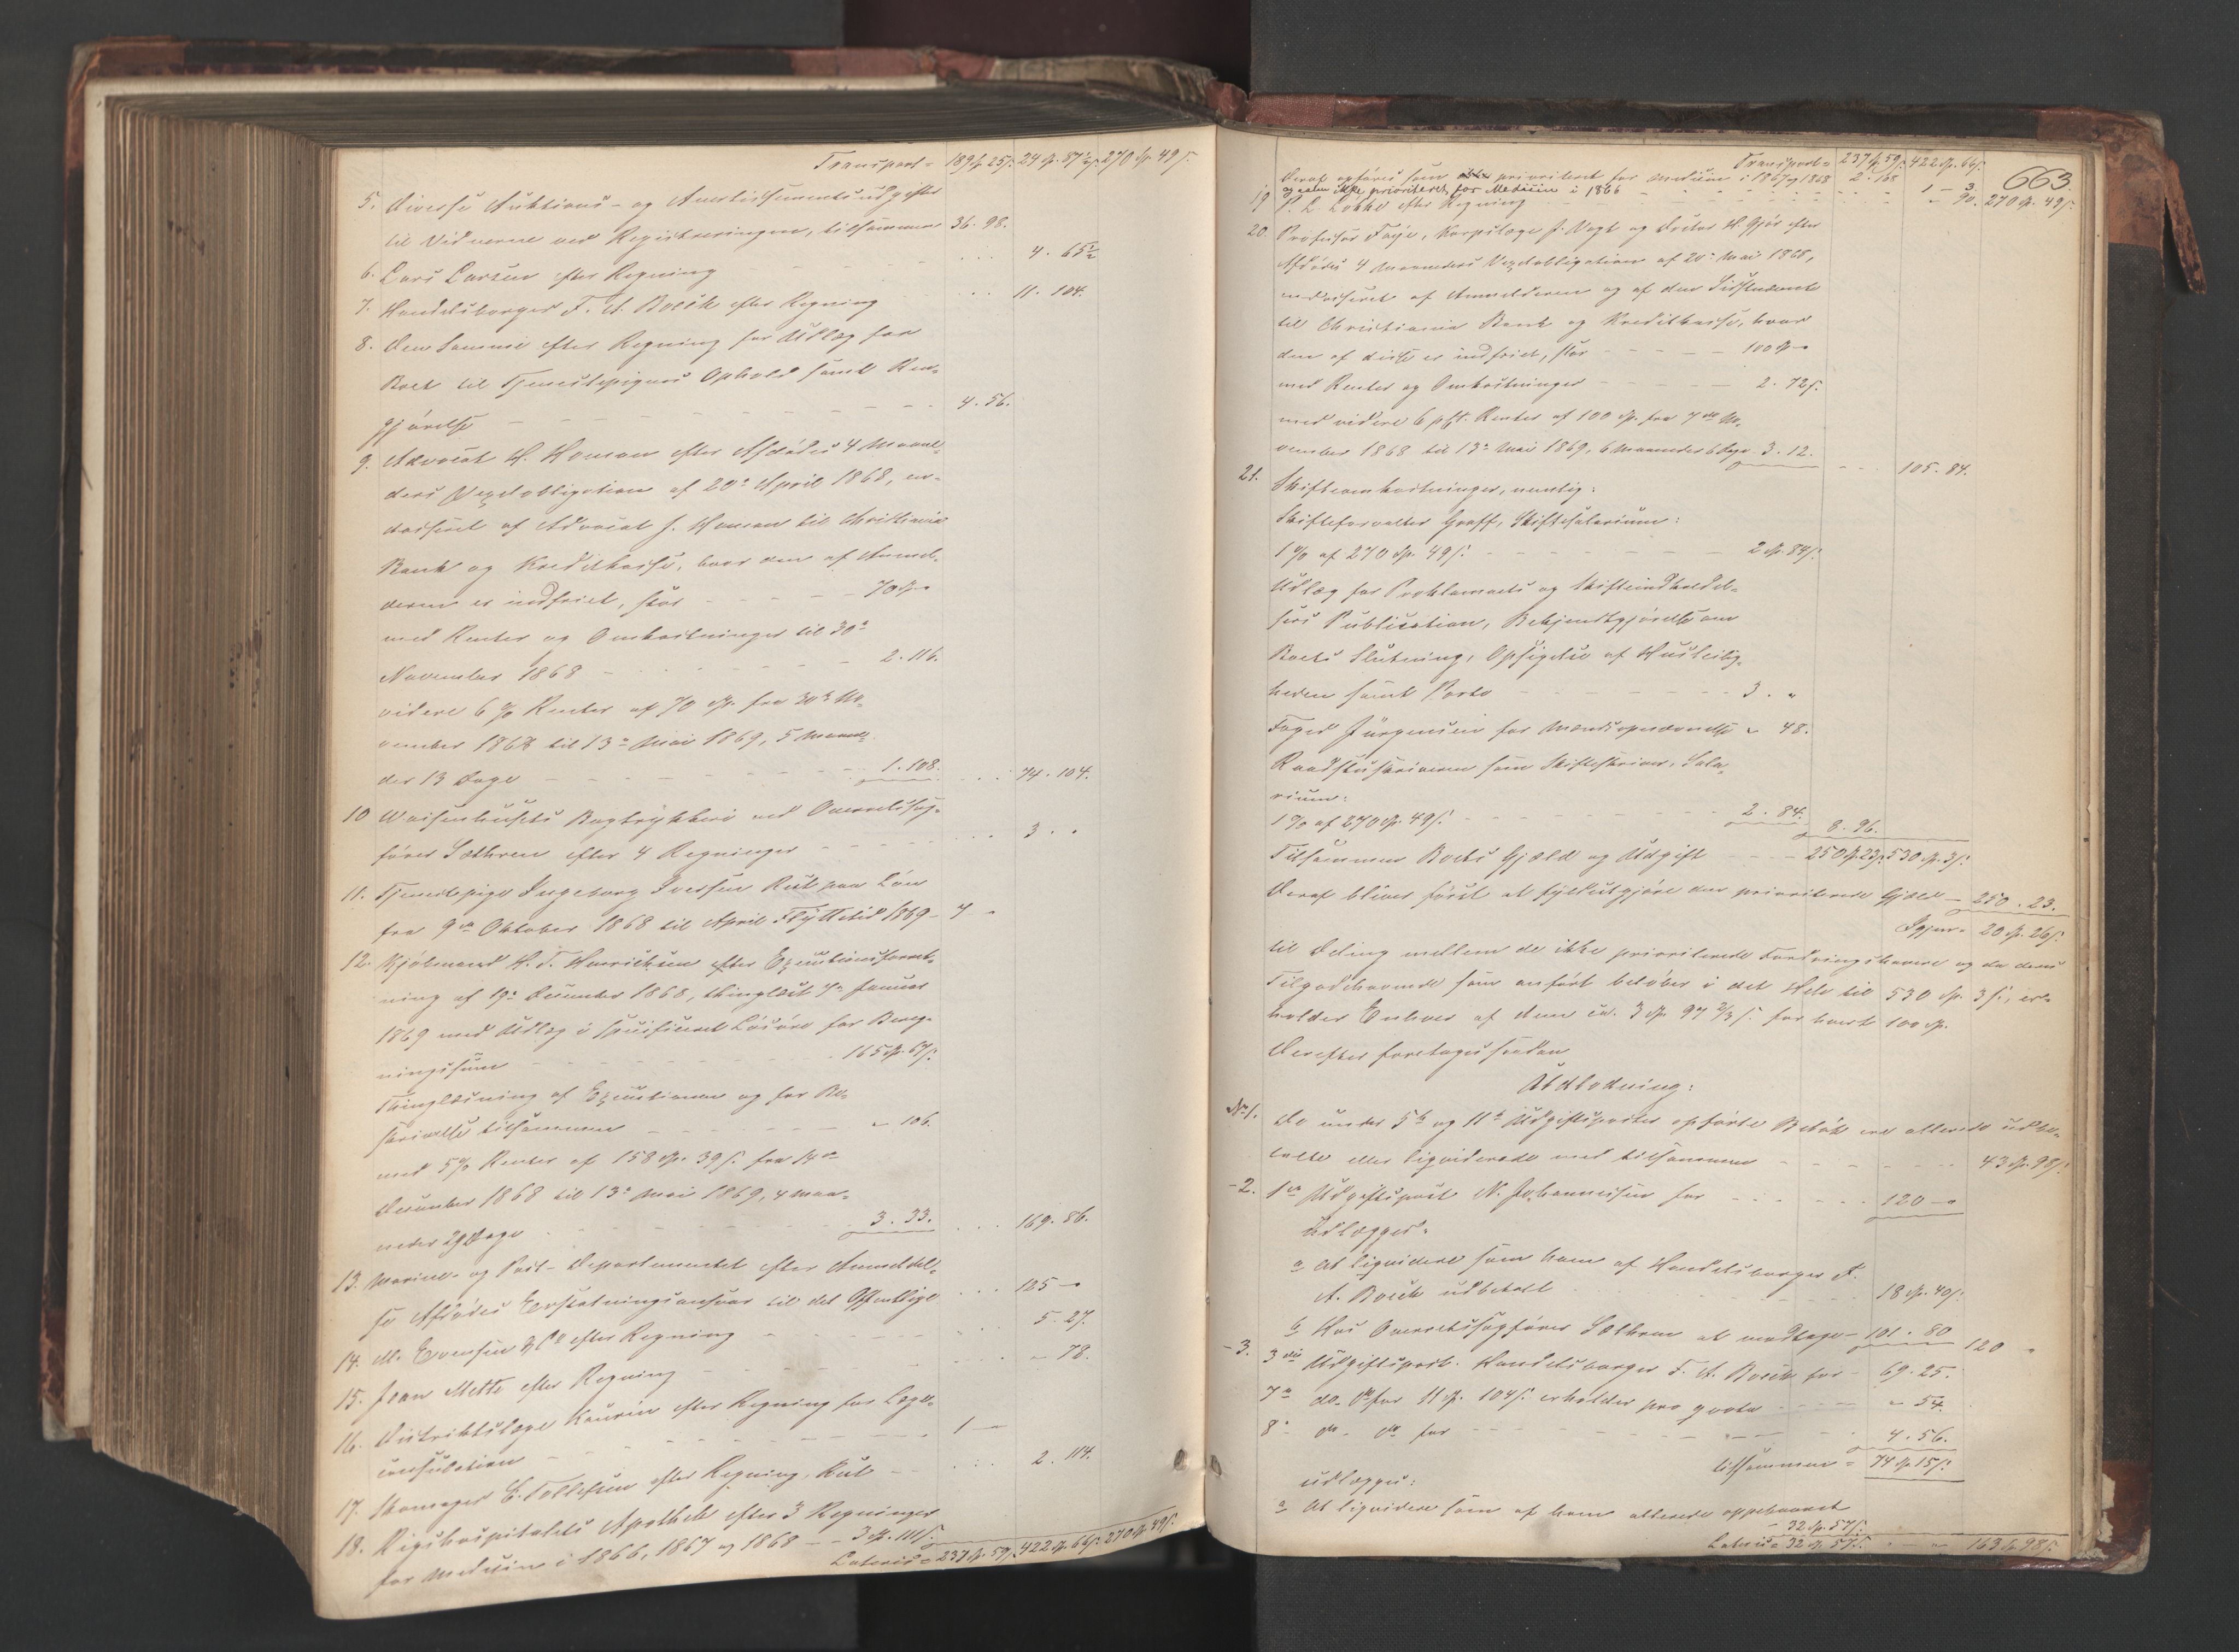 Transport = 189 Sp. 25 s. 24 Sp. 87½ s. 270 Sp. 49 s.
5. Diverse Auktions- og Avertissementsudgifter
til Vidnerne ved Registreringen, tilsammen 36. 98.
6. Lars Larsen efter Regning - - - 4. 65½
7. Handelsborger F. A. Boeck efter Regning - - 11. 104.
8. Den Samme efter Regning for Udlæg for
Boet til Tjenestepigens Ophold samt Ren-
gjørelse - - - 4. 56.
9. Advocat H. Homan efter Afdødes 4 Maane-
ders Vexelobligation af 20de April 1868, en-
dosseret af Advocat J. Homan til Christiania
Bank og Kreditkasse, hvor den af Anmel-
deren er indfriet, stor - - - 70 Sp. "
med Renter og Omkostninger til 30te
November 1868 - - - 2. 116.
videre 6 % Renter af 70 Sp. fra 30te No-
vember 1868 til 13de Mai 1869, 5 Maane-
der 13 Dage - - - 1. 108. - - - 74. 104.
10 Waisenhusets Bogtrykkeri ved Overretssag-
fører Sæthren efter 4 Regninger - - - 3. "
11. Tjenestepige Ingeborg Iversen Rest paa Løn
fra 9de Oktober 1868 til April Flyttetid 1869 - 7 "
12. Kjøbmand H. T. Henrichsen efter Executionsforret-
ning af 19de December 1868, thinglæst 7de Januar
1869 med Udlæg i specificeret Løsøre for Bereg-
ningssum - - - 165 Sp. 67 s.
Thinglæsning af Executionen og for Be-
skrivelse tilsammen - - - " 106.
med 5 % Renter af 158 Sp. 39 s. fra 14de
December 1868 til 13de Mai 1869, 4 Maa-
neder 29 Dage - - - 3. 33. - - - 169. 86.
13. Marine- og Post-Departementet efter Anmeldel-
se Afdødes Erstatningsansvar til det Offentlige - - - 125 "
14. M. Evensen & Co efter Regning - - - 5. 27.
15. Jean Mette efter Regning - - - " 78.
16. Distriktslæge Kaurin efter Regning for Læge-
consultation - - - 1 —
17. Skomager E. Tollefsen efter Regning, Rest - - - 2. 114.
18. Rigshospitalets Apothek efter 3 Regninger
for Medicin i 1866, 1867 og 1868 - - 3 Sp. 111 s.
Lateris = 237 Sp. 59 s. 422 Sp. 66 s. 270 Sp. 49 s.
663.
Transport = 237 Sp. 59 s. 422 Sp. 66 s.
Deraf opføres som prioriteret for Medicin i 1867 og 1868 2. 108
og som ikke prioriteret for Medicin i 1866 - - - 1 - 3.
19 P. L. Løkke efter Regning - - - " 90. 270 Sp. 49 s.
20. Professor Faye, Korpslæge J. Vogt og Doctor H. Gjør efter
Afdødes 4 Maaneders Vexelobligation af 20de Mai 1868,
endosseret af Anmelderen og af den Sidstnævnte
til Christiania Bank og Kreditkasse, hvor
den af disse er indfriet, stor - - - 100 Sp. "
med Renter og Omkostninger - - - 2. 72 s.
med videre 6 pCt. Renter af 100 Sp. fra 7de No-
vember 1868 til 13de Mai 1869, 6 Maaneder 6 Dage 3. 12. - - - 105. 84.
21. Skifteomkostninger, nemlig:
Skifteforvalter Graff, Skiftesalarium:
1 % af 270 Sp. 49 s. - - - 2 Sp. 84 s.
Udlæg for Proklamaets og Skifteindkaldel-
sers Publication, Bekjendtgjørelse om
Boets Slutning, Opsigelse af Husleilig-
heden samt Porto - - - 3. "
Foged Jürgensen for Mændsopnævnelse " 48.
Raadstueskriveren som Skifteskriver, Sala-
rium:
1 % af 270 Sp. 49 s. - - - 2. 84. 8. 96.
Tilsammen Boets Gjæld og Udgift - - - 250 Sp. 23 s. 530 Sp. 3 s.
Deraf bliver først at fyldestgjøre den prioriterede Gjæld - 250. 23.
Igjen = 20 Sp. 26 s.
til Deling mellem de ikke prioriterede Fordringshavere og da deres
Tilgodehavende som anført beløber i det Hele til 530 Sp. 3 s., er-
holder Enhver af dem ca. 3 Sp. 97 ⅔ s. for hvert 100 Sp.
Derefter foretages saadan
Udlodning:
No 1. De under 5te og 11te Udgiftsposter opførte Beløb ere allerede udbe-
talte eller liqviderede med tilsammen - - - 43 Sp. 98 s.
- 2. 1ste Udgiftspost N. Johannesen for - - - 120 "
Udlægges:
a At liqvidere som ham af Handelsborger F.
A. Boeck udbetalt - - - 18 Sp. 40 s.
b Hos Overretssagfører Sæthren at modtage - 101. 80 120 "
- 3. 3die Udgiftspost. Handelsborger F. A. Boeck for - 69. 25.
7de do. do for 11 Sp. 104 s. erholder pro qvota - - - " 54.
8de do. do for - - - 4. 56.
tilsammen = 74 Sp. 15 s.
udlægges:
a At liqvidere som af ham allerede oppebaaret
- 32 Sp. 57 s.
Lateris = 32 Sp. 57 s. - - - 163 Sp. 98 s.